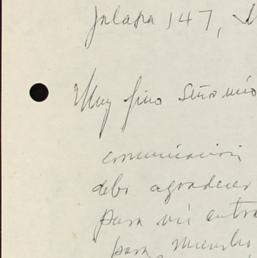 Jalapa 147,
Muy fino Señor mío
comunicación
debo agradecer
para mi
para